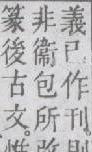 義已作刊。則
非衞包所改
篆後古文。惟